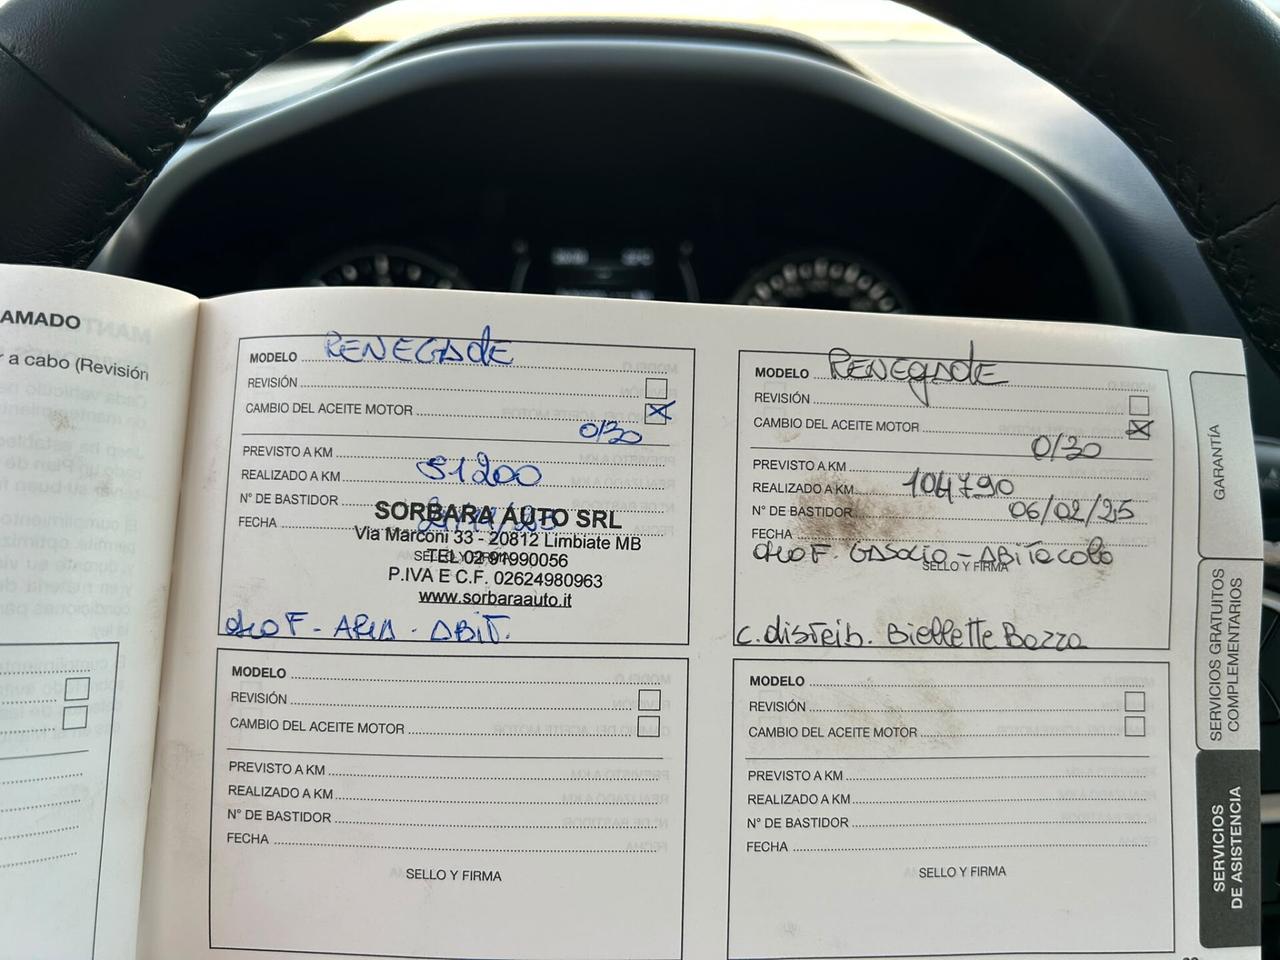 AMADO
r a cabo (Revisión
MODELO RENEGADE
REVISIÓN
CAMBIO DEL ACEITE MOTOR
0/30
PREVISTO A KM
REALIZADO A KM 91200
N° DE BASTIDOR
FECHA
SELLO Y FIRMA
SORBARA AUTO SRL
Via Marconi 33 - 20812 Limbiate MB
TEL 02 91990056
P.IVA E C.F. 02624980963
www.sorbaraauto.it
olio F - ARIA - ABIT.
MODELO RENEGADE
REVISIÓN
CAMBIO DEL ACEITE MOTOR
0/30
PREVISTO A KM
REALIZADO A KM 104790
N° DE BASTIDOR 06/02/25
FECHA
olio F. GASOLIO - ABITACOLO
SELLO Y FIRMA
C. distrib. Biellette Bozza
MODELO
REVISIÓN
CAMBIO DEL ACEITE MOTOR
PREVISTO A KM
REALIZADO A KM
N° DE BASTIDOR
FECHA
SELLO Y FIRMA
MODELO
REVISIÓN
CAMBIO DEL ACEITE MOTOR
PREVISTO A KM
REALIZADO A KM
N° DE BASTIDOR
FECHA
SELLO Y FIRMA
GARANTÍA
SERVICIOS GRATUITOS
COMPLEMENTARIOS
SERVICIOS
DE ASISTENCIA